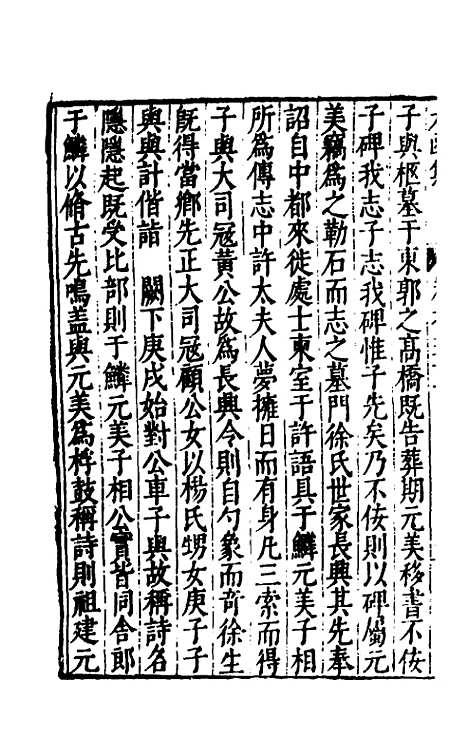 子與柩墓于東郭之髙橋既告葬期元美移書不佞
子碑我志子志我碑惟子先矣乃不佞則以碑屬元
美竊爲之勒石而志之墓門徐氏世家長興其先奉
詔自中都來徙處士東室于許語具于鱗元美子相
所爲傳志中許太夫人夢擁日而有身凡三索而得
子與大司寇黃公故爲長興令則自勺象而奇徐生
旣得當鄉先正大司寇顧公女以楊氏甥女庚子子
與與計偕詣　闕下庚戌始對公車子與故稱詩名
隱隱起既受比部則于鱗元美子相公實皆同舍郎
于鱗以脩古先鳴盖與元美爲桴鼓稱詩則祖建元